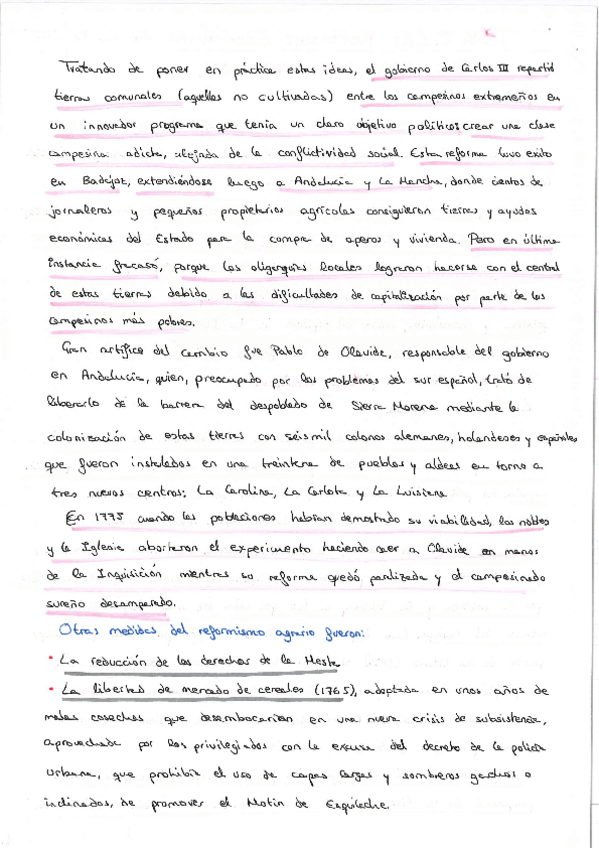 Tratando de poner en práctica estas ideas, el gobierno de Carlos III repartió
tierras comunales (aquellas no cultivadas) entre los campesinos extremeños en
un innovador programa que tenía un claro objetivo político: crear una clase
campesina adicta, alejada de la conflictividad social. Esta reforma tuvo exito
en Badajoz, extendiéndose luego a Andalucía y La Mancha, donde cientos de
jornaleros y pequeños propietarios agrícolas consiguieron tierras y ayudas
económicas del Estado para la compra de aperos y vivienda. Pero en última
instancia fracasó, porque las oligarquías locales lograron hacerse con el control
de estas tierras debido a las dificultades de capitalización por parte de los
campesinos más pobres.
Gran artífice del cambio fue Pablo de Olavide, responsable del gobierno
en Andalucía, quien, preocupado por los problemas del sur español, trató de
liberarlo de la barrera del despoblado de Sierra Morena mediante la
colonización de estas tierras con seis mil colonos alemanes, holandeses y españoles
que fueron instalados en una treintena de pueblos y aldeas en torno a
tres nuevos centros: La Carolina, La Carlota y La Luisiana
En 1775 cuando las poblaciones habían demostrado su viabilidad, los nobles
y la Iglesia abortaron el experimento haciendo caer a Olavide en manos
de la Inquisición mientras su reforma quedó paralizada y al campesinado
sureño desamparado.
Otras medidas del reformismo agrario fueron:
• La reducción de los derechos de la Mesta
• La libertad de mercado de cereales (1765), adoptada en unos años de
malas cosechas que desembocarían en una nueva crisis de subsistencia,
aprovechada por los privilegiados con la excusa del decreto de la policía
urbana, que prohibía el uso de capas largas y sombreros gachos o
inclinados, de promover el Motín de Esquilache.